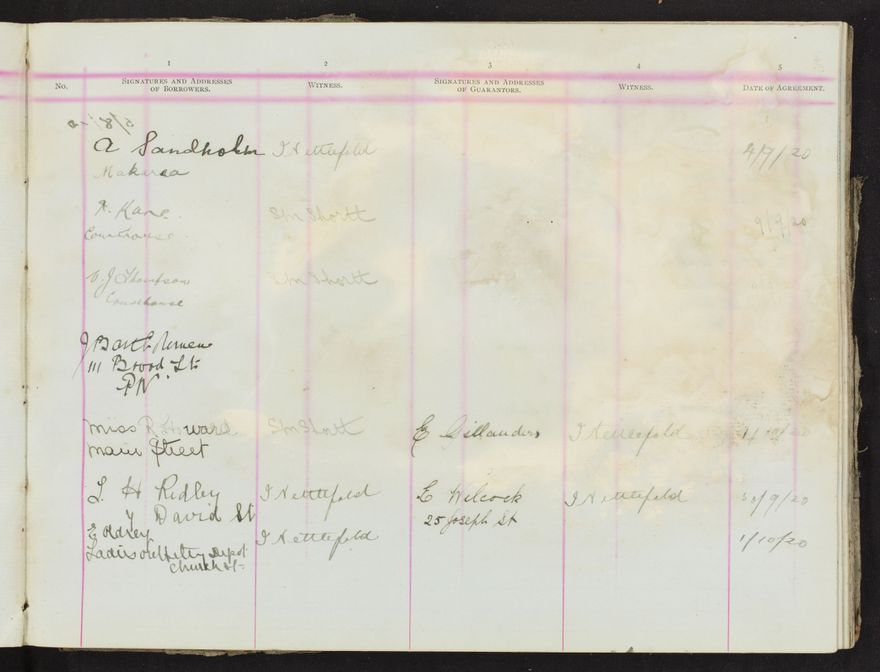 1 2 3 4 5
No. SIGNATURES AND ADDRESSES OF BORROWERS. WITNESS. SIGNATURES AND ADDRESSES OF GUARANTORS. WITNESS. DATE OF AGREEMENT.
A Sandholm I Nettlefold 4/9/20
Makaraa
Kane SM Shortt 9/9/20
Courthouse
J Thompson SM Shortt
Courthouse
J Bartholomew
111 Broad St
PN
Miss R Howard SM Shortt E Gillanders I Nettlefold
Main Street
L H Ridley I Nettlefold E Wilcock I Nettlefold 30/9/20
David St 25 Joseph St
E Odrey I Nettlefold 1/10/20
Ladies Depot
Church St